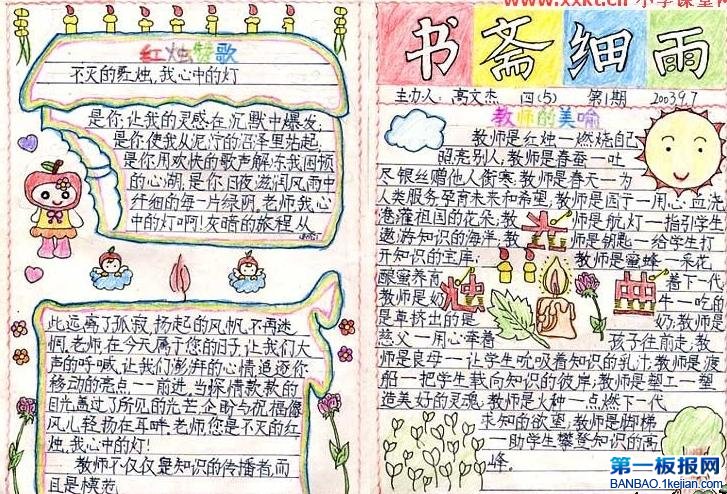 红烛颂歌
不灭的红烛,我心中的灯
是你,让我的灵感在沉默中爆发;
是你,使我从泥泞的沼泽里站起,
是你,用欢快的歌声解冻我困顿
的心湖,是你,日夜滋润风雨中
纤细的每一片绿阴。老师,我心
中的灯啊!灰暗的旅程,从
此远离了孤寂,扬起的风帆,不再迷
惘。老师,在今天属于您的日子,让我们大
声的呼喊,让我们澎湃的心情追逐你
移动的亮点,一一前进,当深情款款的
目光盖过了所见的光芒,企盼与祝福像
风儿轻扬在耳畔,老师,您是不灭的红
烛,我心中的灯!
教师不仅仅是知识的传播者,而
且是模范
www.xxkt.cn 小学课堂网
书斋细雨
主办人:高文杰 四(5) 第1期 2003.9.7
教师的美喻
教师是红烛一燃烧自己
照亮别人,教师是春蚕一吐
尽银丝赠他人御寒;教师是春天一为
人类服务孕育未来和希望,教师是园丁一用心血浇
灌祖国的花朵;教师是航灯一指引学生
遨游知识的海洋;教师是钥匙一给学生打
开知识的宝库;教师是蜜蜂一采花
酿蜜养育着下一代
教师是奶牛一吃的
是草挤出的是奶,教师是
慈父一用心牵着孩子往前走,教
师是良母一让学生吮吸着知识的乳汁,教师是渡
船一把学生载向知识的彼岸;教师是塑工一塑
造美好的灵魂,教师是火种一点燃下一代
求知的欲望;教师是脚梯
一助学生攀登知识的高
峰。
第一板报网
BANBAO.1kejian.com